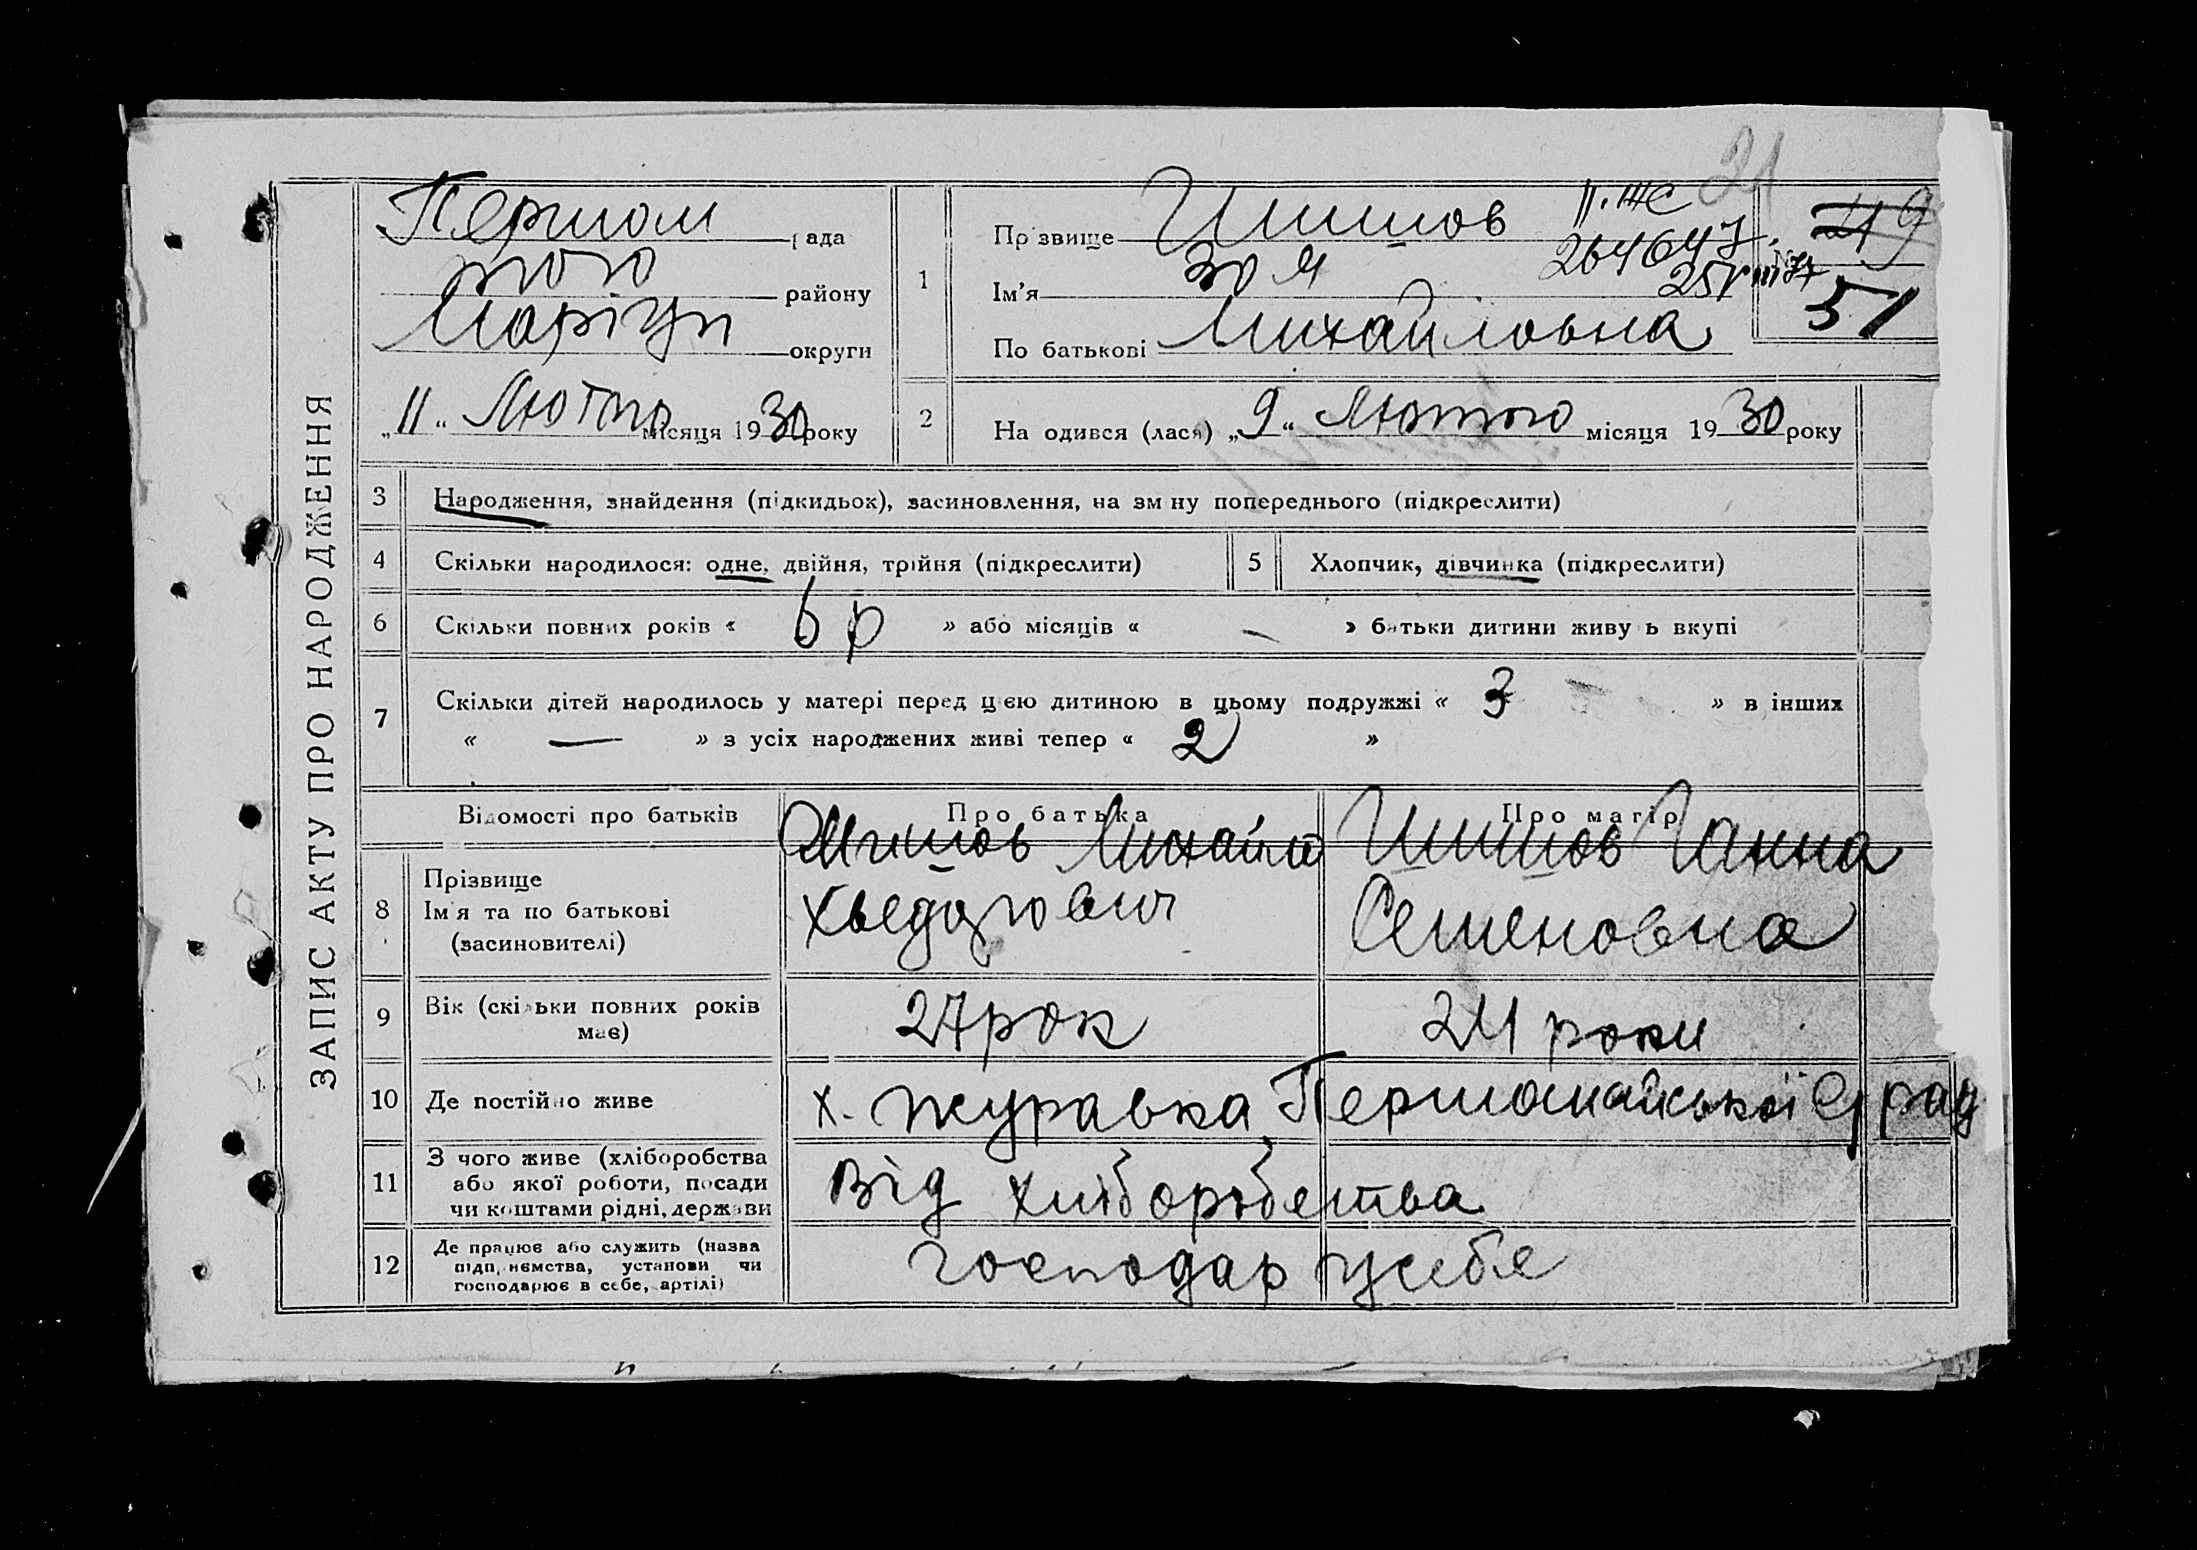 21
Першом рада
того району
Маріуп округи
„11“ Лютого місяця 1930 року
ЗАПИС АКТУ ПРО НАРОДЖЕННЯ
1 Прізвище Шишов
II. ЖС
264647
49
51
Ім'я Зоя
По батькові Михайловна
2 Народився (лася) „9“ Лютого місяця 1930 року
3 Народження, знайдення (підкидьок), засиновлення, на зміну попереднього (підкреслити)
4 Скільки народилося: одне, двійня, трійня (підкреслити)
5 Хлопчик, дівчинка (підкреслити)
6 Скільки повних років « 6 р » або місяців « — » батьки дитини живуть вкупі
7 Скільки дітей народилось у матері перед цією дитиною в цьому подружжі « 3 » в інших
« — » з усіх народжених живі тепер « 2 »
Відомості про батьків Про батька Про матір
8 Прізвище
Ім'я та по батькові
(засиновителі)
Шишов Михайло
Хведорович
Шишов Ганна
Семеновна
9 Вік (скільки повних років
має)
27 рок 24 роки
10 Де постійно живе х. Журавка Першомайської С/рад
11 З чого живе (хліборобства
або якої роботи, посади
чи коштами рідні, держави
Від хліборобства
12 Де працює або служить (назва
підприємства, установи чи
господарює в себе, артілі)
господар у себе